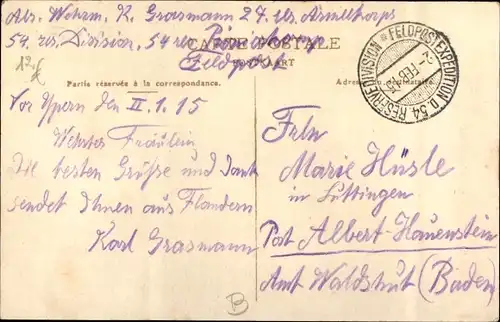 Abs. Wehrm. K. Grasmann 27. res. Armeekorps
54. res. Division, 54 res.
Feldpost
CARTE POSTALE
Partie réservée à la correspondance.
FELDPOSTEXPEDITION D. 54. RESERVEDIVISION
2. FEB. 15
Vor Ypern den II.1.15
Wehrtes Fräulein
Die besten Grüße und Dank
sendet Ihnen aus Flandern
Karl Grasmann
Frln
Marie Hüsle
in Luttingen
Post Albert-Hauenstein
Amt Waldshut (Baden)
B